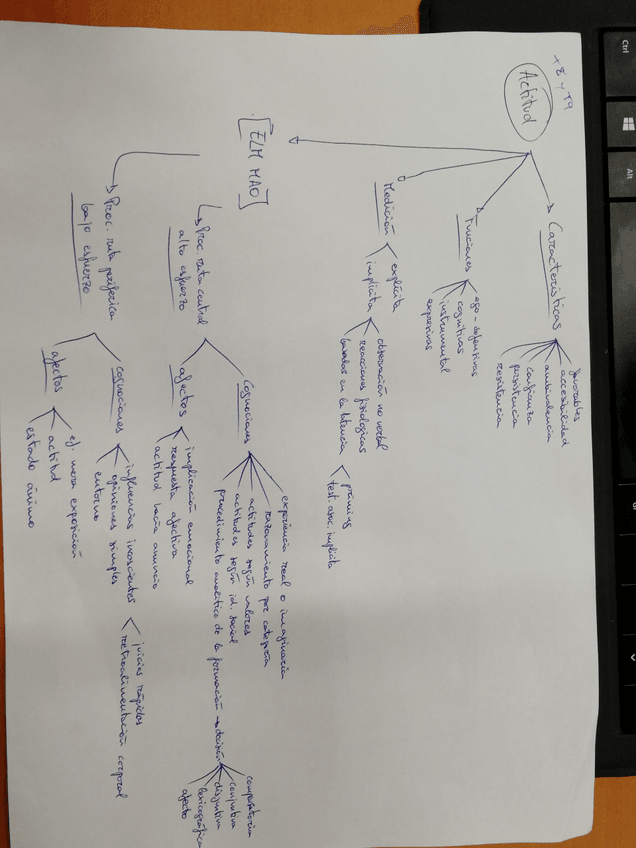 T8 y T9
Actitud
Características
favorables
accesibilidad
ambivalencia
confianza
persistencia
resistencia
Funciones
ego-defensivas
cognitivas
instrumental
expresivas
Medición
explícita
implícita
observación no verbal
reacciones fisiológicas
basadas en la latencia
priming
test. asoc. implícita
[ELM MAO]
Proc. ruta central
alto esfuerzo
Cogniciones
experiencia real o imaginaria
razonamiento por categoría
actitudes según valores
actitudes según id. social
procedimiento analítico de la formación → decisión
compensatoria
conjuntiva
disjuntiva
lexicográfica
afecto
afectos
implicación emocional
respuesta afectiva
actitud hacia anuncio
Proc. ruta periférica
bajo esfuerzo
cogniciones
influencias inconscientes
opiniones simples
entorno
juicios rápidos
retroalimentación corporal
afectos
ef. mera exposición
actitud
estado ánimo
Ctrl
Alt